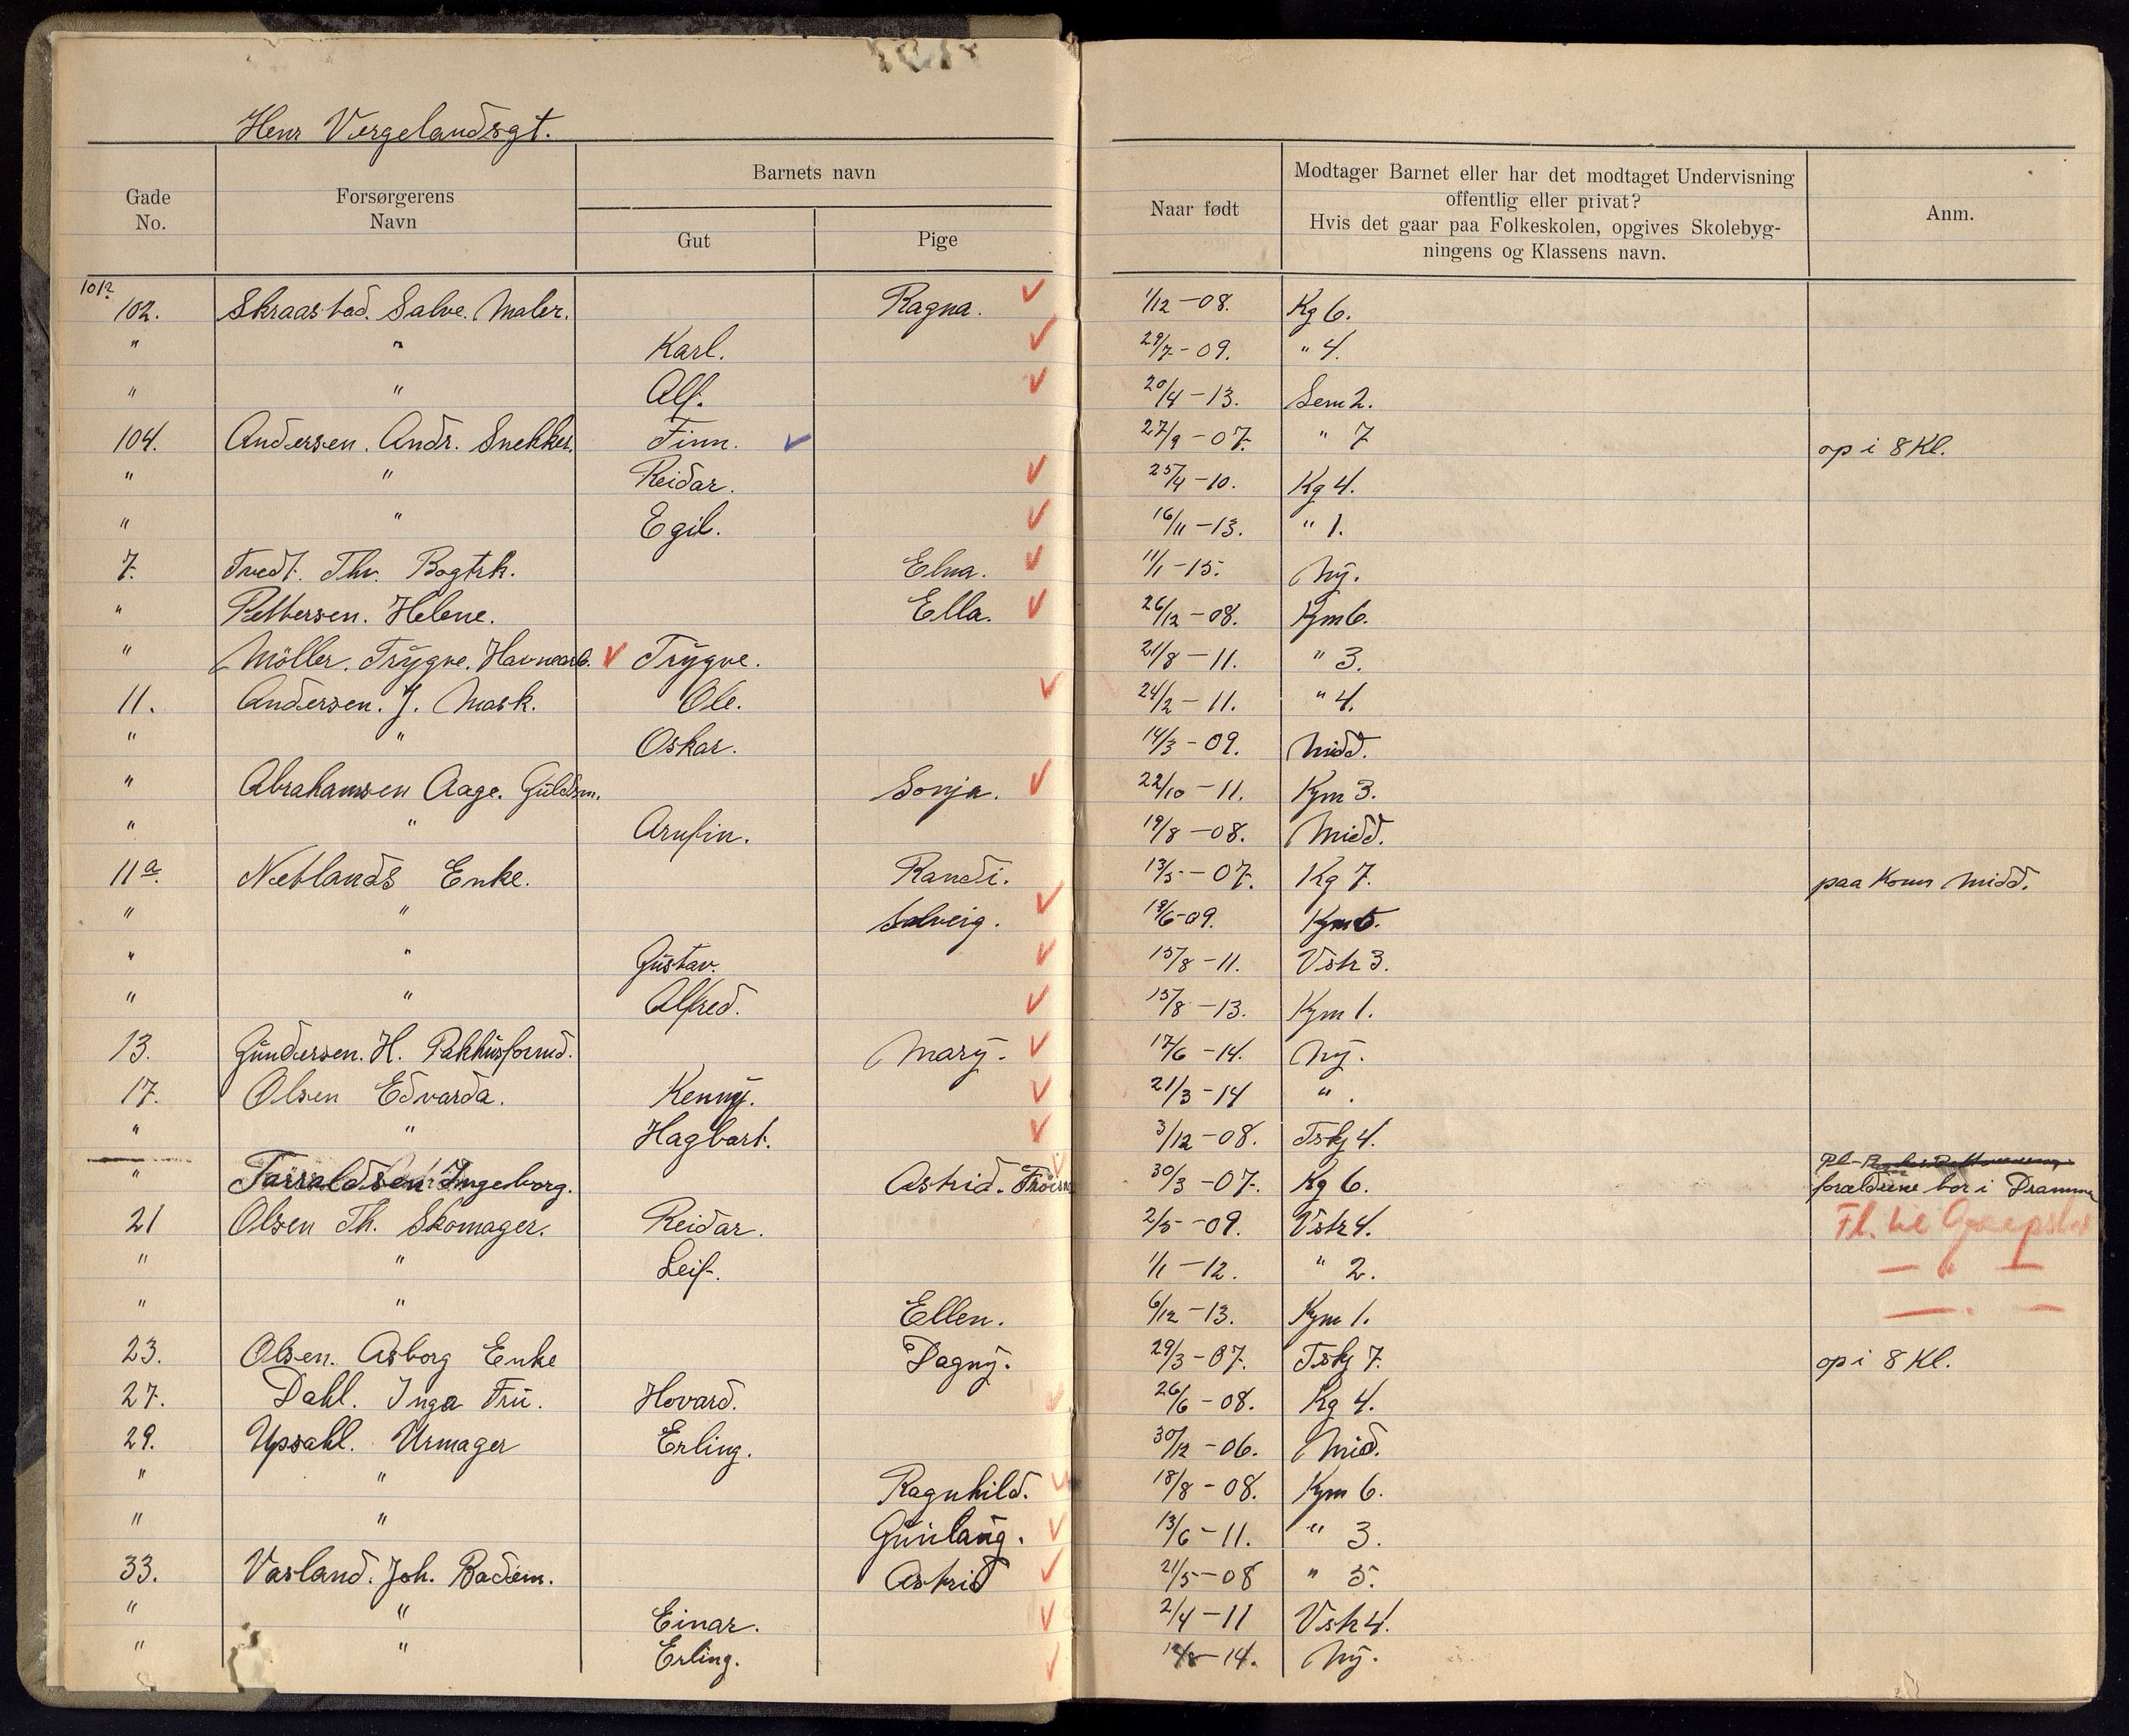 Henr Vergelandsgt.
Gade No. Forsørgerens Navn Barnets navn Gut Pige Naar født Modtager Barnet eller har det modtaget Undervisning offentlig eller privat? Hvis det gaar paa Folkeskolen, opgives Skolebyg-ningens og Klassens navn. Anm.
102. Skraastad. Salve. Maler. Ragna. 1/12 -08. Kg 6.
" " Karl. 29/7 -09. " 4.
" " Alf. 20/4 -13. Sem 2.
104. Andersen. Andr. Snekker. Finn. 27/9 -07. " 7 op i 8 Kl.
" " Reidar. 25/4 -10. Kg 4.
" " Egil. 16/11 -13. " 1.
7. Tvedt. Thv. Bogtrk. Elna. 11/1 -15. Ny.
" Pettersen. Helene. Ella. 26/12 -08. Kym 6.
" Möller. Trygve. Havnearb. Trygve. 21/8 -11. " 3.
11. Andersen. J. Mask. Ole. 24/2 -11. " 4.
" " Oskar. 14/3 -09. Midd.
" Abrahamsen Aage. Guldsm. Sonja. 22/10 -11. Kym 3.
" " Arnfin. 19/8 -08. Midd.
11a. Netlands Enke. Randi. 13/5 -07. Kg 7. paa Kom Midd.
" " Solveig. /6 -09. Kym 5.
" " Gustav. 15/8 -11. Vstr 3.
" " Alfred. 15/8 -13. Kym 1.
13. Gundersen. H. Pakhusformd. Mary. 17/6 -14. Ny.
17. Olsen Edvarda. Kenny. 21/3 -14 " .
" " Hagbart. 3/12 -08. Tskj 4.
" Ingeborg. Astrid. 30/3 -07. Kg 6. Pl- forældrene bor i Drammen
21 Olsen Th. Skomager. Reidar. 2/5 -09. Vstr 4. Fl. til
" " Leif. 1/1 -12. " 2. — " —
" " Ellen. 6/12 -13. Kym 1. — . —
23. Olsen. Asborg Enke Dagny. 29/3 -07. Tskj 7. op i 8 Kl.
27. Dahl. Inga Fru. Hovard. 26/6 -08. Kg 4.
29. Upsahl. Urmager Erling. 30/12 -06. Mid.
" " Ragnhild. 18/8 -08. Kym 6.
" " Gunlaug. 13/6 -11. " 3.
33. Vasland. Joh. Badem. Astrid 21/5 -08 " 5.
" " Einar. 2/4 -11 Vstr 4.
" " Erling. -14. Ny.